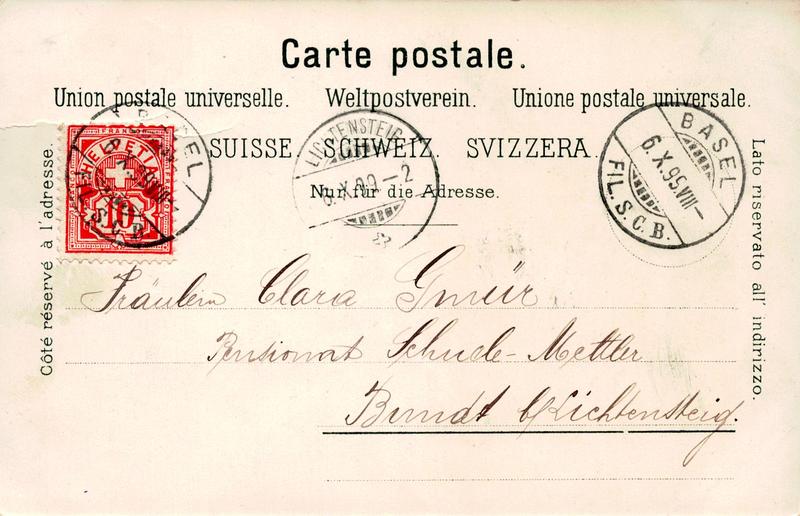 Carte postale.
Union postale universelle. Weltpostverein. Unione postale universale.
SUISSE. SCHWEIZ. SVIZZERA.
Nur für die Adresse.
Côté réservé à l'adresse.
Lato riservato all' indirizzo.
FRANCO
HELVETIA
10
BASEL
LICHTENSTEIG
6.X.99-2
BASEL
6.X.99.VIII-
FIL.S.C.B.
Fräulein Clara Gmür
Pensionat Schuele-Mettler
Bundt b/Lichtensteig.